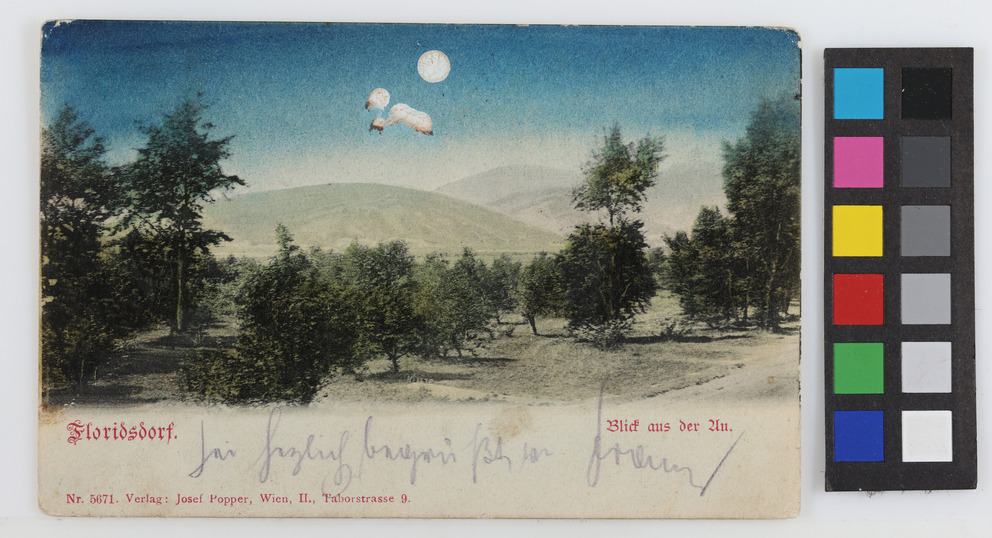 Floridsdorf.
Blick aus der Au.
Sei herzlich begrüßt von Franz
Nr. 5671. Verlag: Josef Popper, Wien, II., Taborstrasse 9.